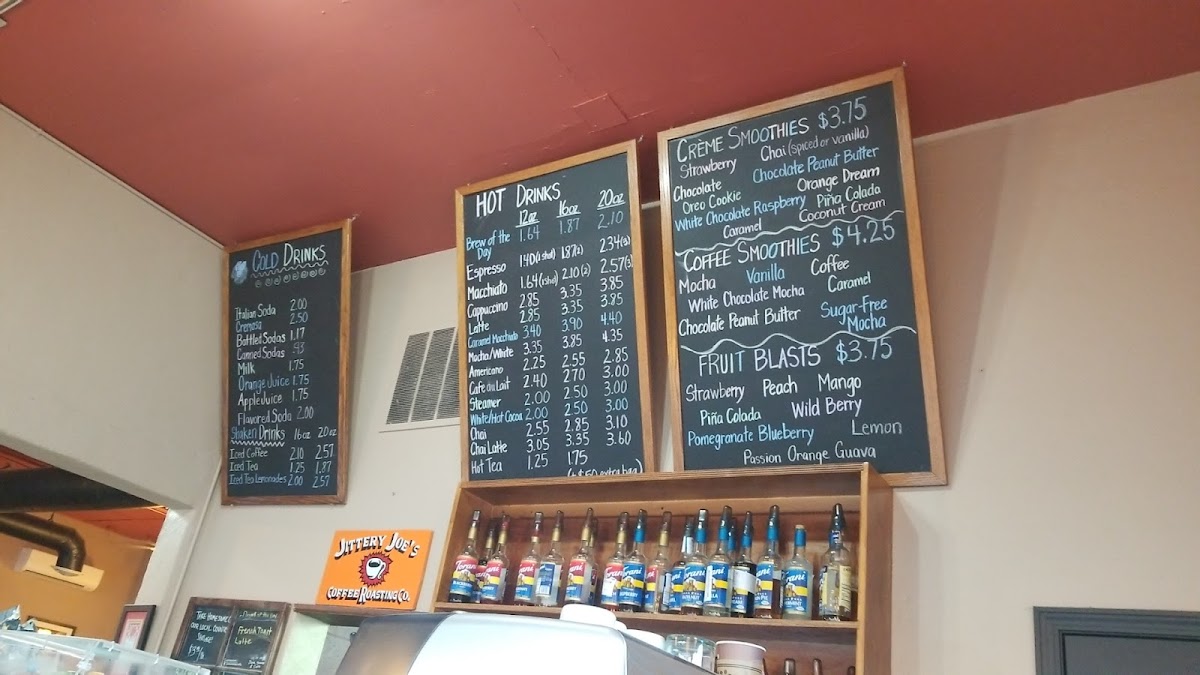 COLD DRINKS
Italian Soda 2.00
Cremosa 2.50
Bottled Sodas 1.17
Canned Sodas .93
Milk 1.75
Orange Juice 1.75
Apple Juice 1.75
Flavored Soda 2.00
Shaken Drinks 16oz 20oz
Iced Coffee 2.10 2.57
Iced Tea 1.25 1.87
Iced Tea Lemonades 2.00 2.57
HOT DRINKS
12oz 16oz 20oz
Brew of the Day 1.64 1.87 2.10
Espresso 1.40 (1 shot) 1.87 (2) 2.34 (3)
Macchiato 1.64 (1 shot) 2.10 (2) 2.57 (3)
Cappuccino 2.85 3.35 3.85
Latte 2.85 3.35 3.85
Caramel Macchiato 3.40 3.90 4.40
Mocha/White 3.35 3.85 4.35
Americano 2.25 2.55 2.85
Cafe au Lait 2.40 2.70 3.00
Steamer 2.00 2.50 3.00
White/Hot Cocoa 2.00 2.50 3.00
Chai 2.55 2.85 3.10
Chai Latte 3.05 3.35 3.60
Hot Tea 1.25 1.75
(+ $.50 extra bag)
CRÈME SMOOTHIES $3.75
Strawberry Chai (spiced or vanilla)
Chocolate Chocolate Peanut Butter
Oreo Cookie Orange Dream
White Chocolate Raspberry Piña Colada
Caramel Coconut Cream
COFFEE SMOOTHIES $4.25
Mocha Vanilla Coffee
White Chocolate Mocha Caramel
Chocolate Peanut Butter Sugar-Free
Mocha
FRUIT BLASTS $3.75
Strawberry Peach Mango
Piña Colada Wild Berry
Pomegranate Blueberry Lemon
Passion Orange Guava
JITTERY JOE'S
COFFEE ROASTING CO.
Torani
TAKE HOME SOME OF
OUR LOCAL COUNTRY
French Toast
Latte